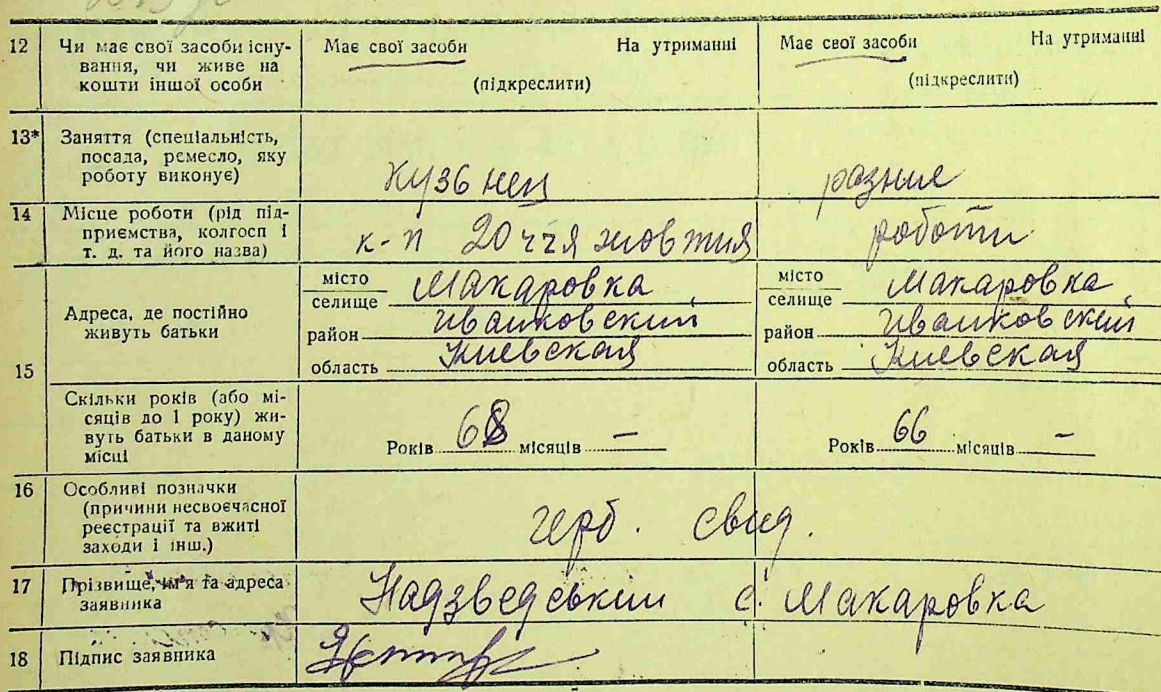 12 Чи має свої засоби існу-
вання, чи живе на
кошти іншої особи
Має свої засоби На утриманні
(підкреслити)
Має свої засоби На утриманні
(підкреслити)
13* Заняття (спеціальність,
посада, ремесло, яку
роботу виконує)
кузьнец
разние
14 Місце роботи (рід під-
приємства, колгосп і
т. д. та його назва)
к-п 20 ччя жовтня
роботи
15 Адреса, де постійно
живуть батьки
місто
селище Макаровка
район Иванковский
область Киевская
місто
селище Макаровка
район Иванковский
область Киевская
Скільки років (або мі-
сяців до 1 року) жи-
вуть батьки в даному
місці
Років 68 місяців —
Років 66 місяців —
16 Особливі позначки
(причини несвоєчасної
реєстрації та вжиті
заходи і інш.)
герб. свид.
17 Прізвище, ім'я та адреса
заявника
Надзведський с. Макаровка
18 Підпис заявника